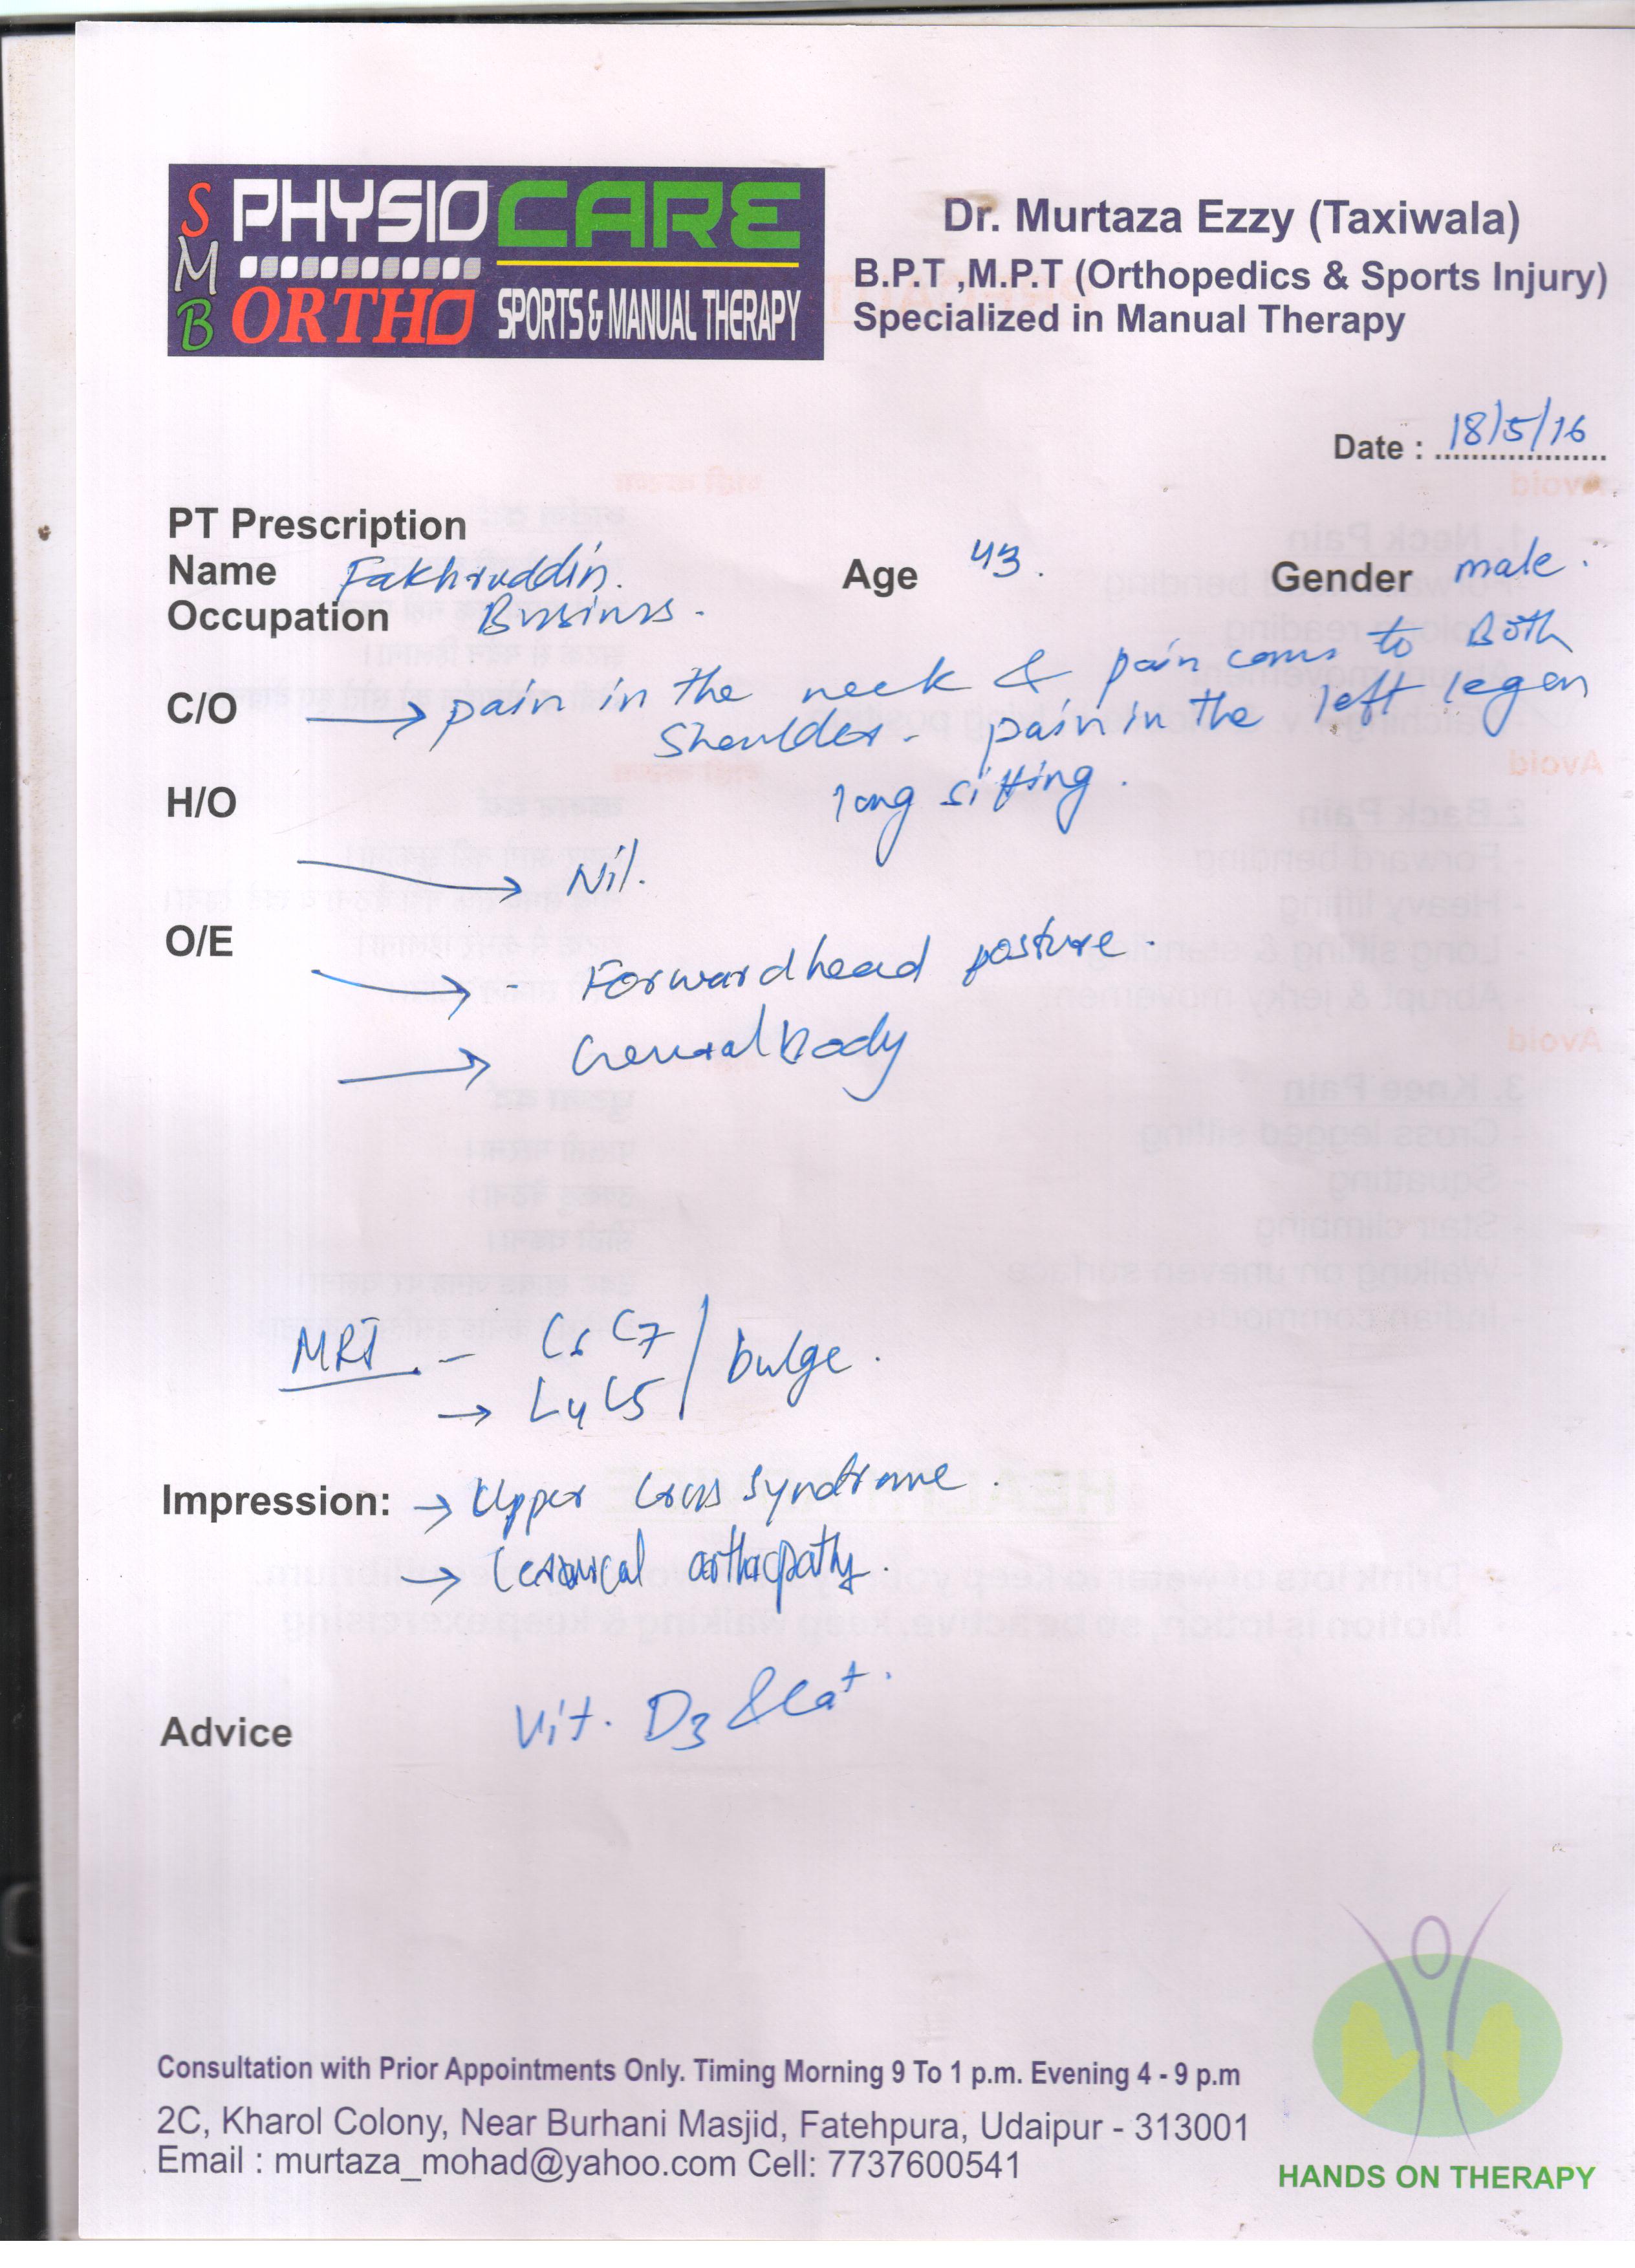 SMB PHYSIO CARE
ORTHO SPORTS & MANUAL THERAPY
Dr. Murtaza Ezzy (Taxiwala)
B.P.T ,M.P.T (Orthopedics & Sports Injury)
Specialized in Manual Therapy
Date : 18/5/16
PT Prescription
Name Fakhruddin. Age 43. Gender male.
Occupation Business.
C/O → pain in the neck & pain coms to Both
Shoulder. pain in the left leg on
long sitting.
H/O
→ Nil.
O/E
→ - Forward head posture.
→ General body
MRI - C6 C7 / bulge.
→ L4 L5
Impression: → Upper Cross Syndrome.
→ Cervical
Advice Vit. D3 & Ca+.
Consultation with Prior Appointments Only. Timing Morning 9 To 1 p.m. Evening 4 - 9 p.m
2C, Kharol Colony, Near Burhani Masjid, Fatehpura, Udaipur - 313001
Email : murtaza_mohad@yahoo.com Cell: 7737600541
HANDS ON THERAPY